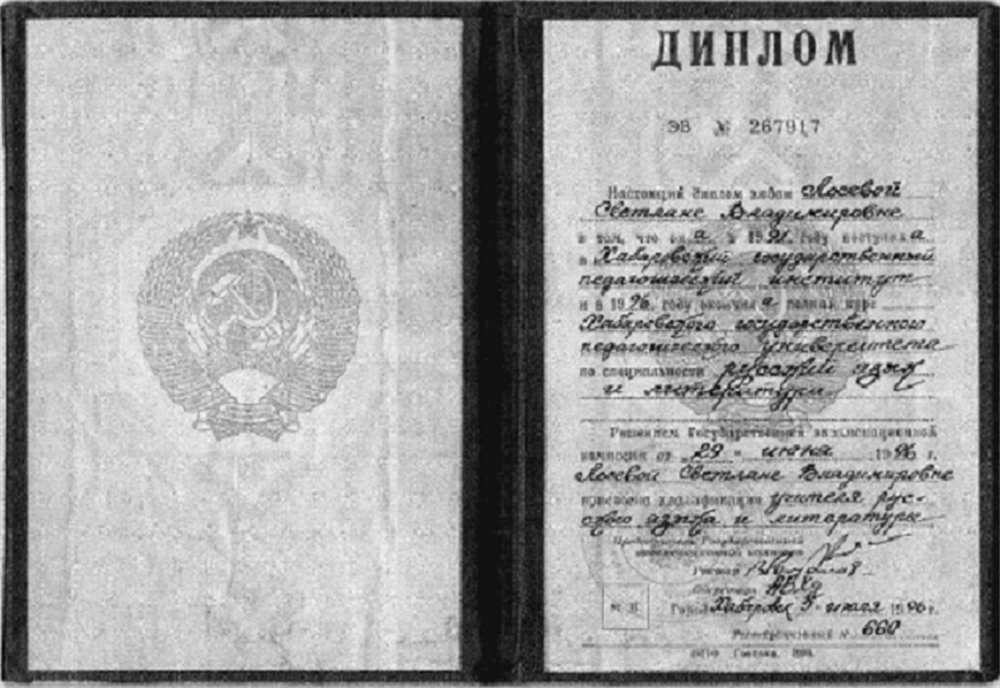 ДИПЛОМ
ЭВ № 267917
Настоящий диплом выдан Лосевой
Светлане Владимировне
в том, что она в 1991 году поступила
в Хабаровский государственный
педагогический институт
и в 1996 году окончила полный курс
Хабаровского государственного
педагогического университета
по специальности русский язык
и литература
Решением Государственной экзаменационной
комиссии от "29" июня 1996 г.
Лосевой Светлане Владимировне
присвоена квалификация учителя рус-
ского языка и литературы
Председатель Государственной
экзаменационной комиссии
Ректор
Секретарь
М. П.
Город Хабаровск июля 1996 г.
Регистрационный № 660
Гознак.